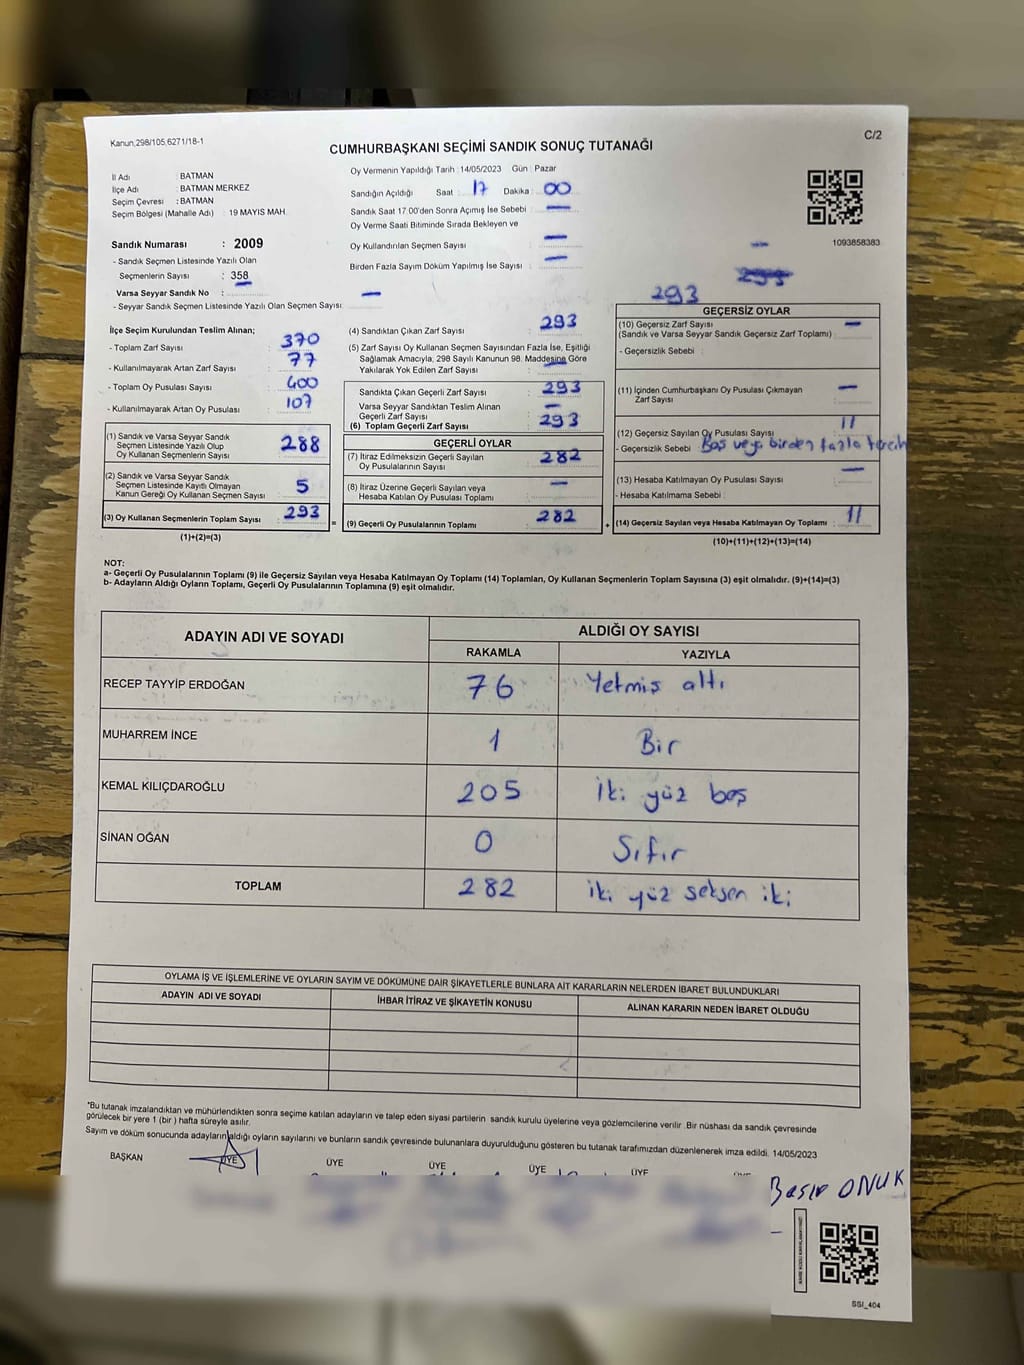 Kanun,298/105,6271/18-1
C/2
CUMHURBAŞKANI SEÇİMİ SANDIK SONUÇ TUTANAĞI
İl Adı : BATMAN
İlçe Adı : BATMAN MERKEZ
Seçim Çevresi : BATMAN
Seçim Bölgesi (Mahalle Adı) : 19 MAYIS MAH.
Sandık Numarası : 2009
- Sandık Seçmen Listesinde Yazılı Olan
Seçmenlerin Sayısı : 358
Varsa Seyyar Sandık No : —
- Seyyar Sandık Seçmen Listesinde Yazılı Olan Seçmen Sayısı:
Oy Vermenin Yapıldığı Tarih : 14/05/2023 Gün : Pazar
Sandığın Açıldığı Saat : 17 Dakika : 00
Sandık Saat 17.00'den Sonra Açımış İse Sebebi : —
Oy Verme Saati Bitiminde Sırada Bekleyen ve
Oy Kullandırılan Seçmen Sayısı : —
Birden Fazla Sayım Döküm Yapılmış İse Sayısı : —
1093858383
293
İlçe Seçim Kurulundan Teslim Alınan;
- Toplam Zarf Sayısı : 370
- Kullanılmayarak Artan Zarf Sayısı : 77
- Toplam Oy Pusulası Sayısı : 400
- Kullanılmayarak Artan Oy Pusulası : 107
(1) Sandık ve Varsa Seyyar Sandık
Seçmen Listesinde Yazılı Olup
Oy Kullanan Seçmenlerin Sayısı : 288
(2) Sandık ve Varsa Seyyar Sandık
Seçmen Listesinde Kayıtlı Olmayan
Kanun Gereği Oy Kullanan Seçmen Sayısı : 5
(3) Oy Kullanan Seçmenlerin Toplam Sayısı : 293
(1)+(2)=(3)
(4) Sandıktan Çıkan Zarf Sayısı : 293
(5) Zarf Sayısı Oy Kullanan Seçmen Sayısından Fazla İse, Eşitliği
Sağlamak Amacıyla, 298 Sayılı Kanunun 98. Maddesine Göre
Yakılarak Yok Edilen Zarf Sayısı : —
Sandıkta Çıkan Geçerli Zarf Sayısı : 293
Varsa Seyyar Sandıktan Teslim Alınan
Geçerli Zarf Sayısı : —
(6) Toplam Geçerli Zarf Sayısı : 293
GEÇERLİ OYLAR
(7) İtiraz Edilmeksizin Geçerli Sayılan
Oy Pusulalarının Sayısı : 282
(8) İtiraz Üzerine Geçerli Sayılan veya
Hesaba Katılan Oy Pusulası Toplamı : —
= (9) Geçerli Oy Pusulalarının Toplamı : 282
GEÇERSİZ OYLAR
(10) Geçersiz Zarf Sayısı : —
(Sandık ve Varsa Seyyar Sandık Geçersiz Zarf Toplamı)
- Geçersizlik Sebebi :
(11) İçinden Cumhurbaşkanı Oy Pusulası Çıkmayan
Zarf Sayısı : —
(12) Geçersiz Sayılan Oy Pusulası Sayısı : 11
- Geçersizlik Sebebi : Boş veya birden fazla tercih
(13) Hesaba Katılmayan Oy Pusulası Sayısı : —
- Hesaba Katılmama Sebebi :
+ (14) Geçersiz Sayılan veya Hesaba Katılmayan Oy Toplamı : 11
(10)+(11)+(12)+(13)=(14)
NOT:
a- Geçerli Oy Pusulalarının Toplamı (9) ile Geçersiz Sayılan veya Hesaba Katılmayan Oy Toplamı (14) Toplamları, Oy Kullanan Seçmenlerin Toplam Sayısına (3) eşit olmalıdır. (9)+(14)=(3)
b- Adayların Aldığı Oyların Toplamı, Geçerli Oy Pusulalarının Toplamına (9) eşit olmalıdır.
ADAYIN ADI VE SOYADI ALDIĞI OY SAYISI
RAKAMLA YAZIYLA
RECEP TAYYİP ERDOĞAN 76 Yetmiş altı
MUHARREM İNCE 1 Bir
KEMAL KILIÇDAROĞLU 205 iki yüz beş
SİNAN OĞAN 0 Sıfır
TOPLAM 282 iki yüz seksen iki
OYLAMA İŞ VE İŞLEMLERİNE VE OYLARIN SAYIM VE DÖKÜMÜNE DAİR ŞİKAYETLERLE BUNLARA AİT KARARLARIN NELERDEN İBARET BULUNDUKLARI
ADAYIN ADI VE SOYADI İHBAR İTİRAZ VE ŞİKAYETİN KONUSU ALINAN KARARIN NEDEN İBARET OLDUĞU
*Bu tutanak imzalandıktan ve mühürlendikten sonra seçime katılan adayların ve talep eden siyasi partilerin sandık kurulu üyelerine veya gözlemcilerine verilir .Bir nüshası da sandık çevresinde
görülecek bir yere 1 (bir ) hafta süreyle asılır.
Sayım ve döküm sonucunda adayların aldığı oyların sayılarını ve bunların sandık çevresinde bulunanlara duyurulduğunu gösteren bu tutanak tarafımızdan düzenlenerek imza edildi. 14/05/2023
BAŞKAN ÜYE ÜYE ÜYE ÜYE ÜYE
ONUK
SSI_404